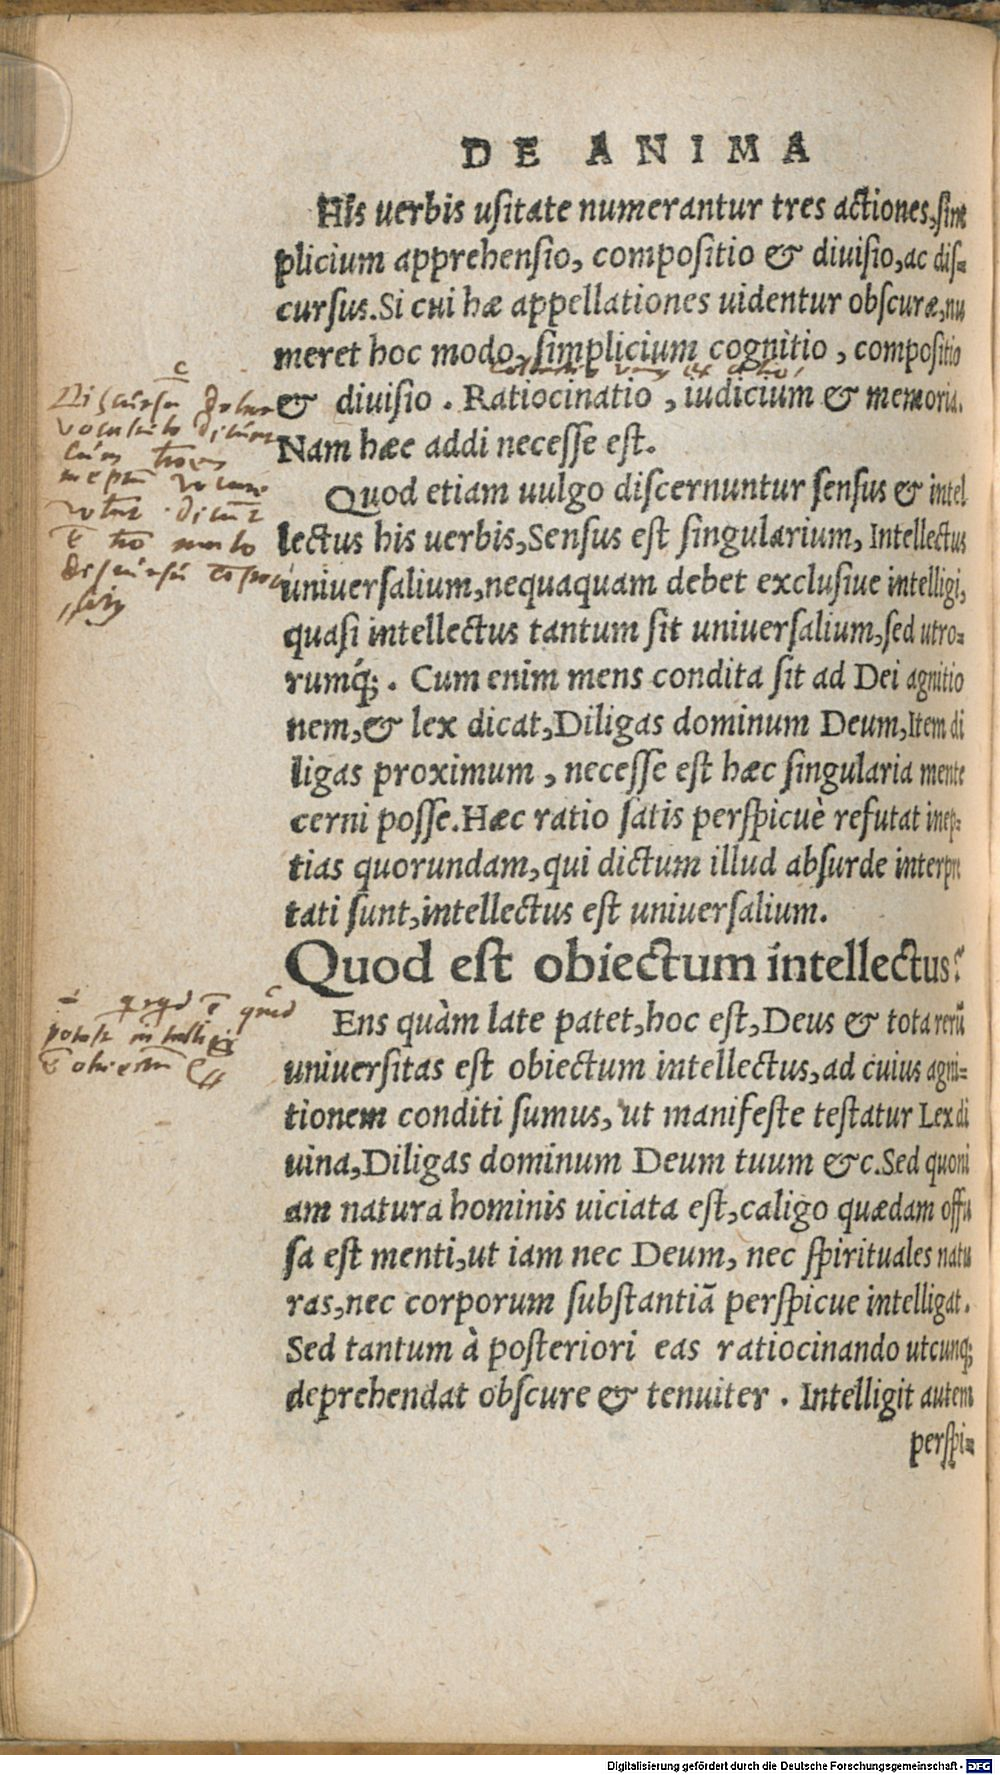 DE ANIMA
His uerbis usitate numerantur tres actiones, sim
plicium apprehensio, compositio & diuisio, ac dis-
cursus. Si cui hæ appellationes uidentur obscuræ, nu
meret hoc modo, simplicium cognitio, compositio
& diuisio. Ratiocinatio, iudicium & memoria.
Nam hæc addi necesse est.
Quod etiam uulgo discernuntur sensus & intel
lectus his uerbis, Sensus est singularium, Intellectus
uniuersalium, nequaquam debet exclusiue intelligi,
quasi intellectus tantum sit uniuersalium, sed utro-
rumq́;. Cum enim mens condita sit ad Dei agnitio
nem, & lex dicat, Diligas dominum Deum, Item di
ligas proximum, necesse est hæc singularia mente
cerni posse. Hæc ratio satis perspicuè refutat inep-
tias quorundam, qui dictum illud absurde interpre
tati sunt, intellectus est uniuersalium.
Quod est obiectum intellectus?
Ens quàm late patet, hoc est, Deus & tota rerũ
uniuersitas est obiectum intellectus, ad cuius agni-
tionem conditi sumus, ut manifeste testatur Lex di
uina, Diligas dominum Deum tuum &c. Sed quoni
am natura hominis uiciata est, caligo quædam offu
sa est menti, ut iam nec Deum, nec spirituales natu
ras, nec corporum substantiã perspicue intelligat.
Sed tantum à posteriori eas ratiocinando utcunq;
deprehendat obscure & tenuiter. Intelligit autem
perspi-
Digitalisierung gefördert durch die Deutsche Forschungsgemeinschaft - DFG